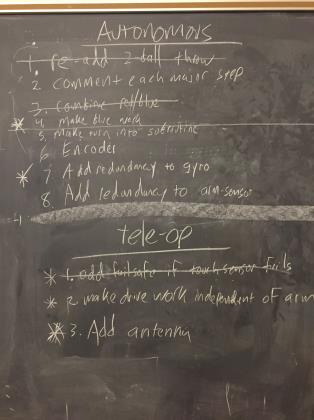 Autonomous
1. re-add 2-ball throw
2. comment each major step
3. combine red/blue
* 4. make blue work
5. make turn into subroutine
6. Encoder
* 7. Add redundancy to gyro
8. Add redundancy to arm-sensor
tele-op
* 1. add failsafe if touch sensor fails
* 2. make drive work independent of arm
* 3. Add antenna